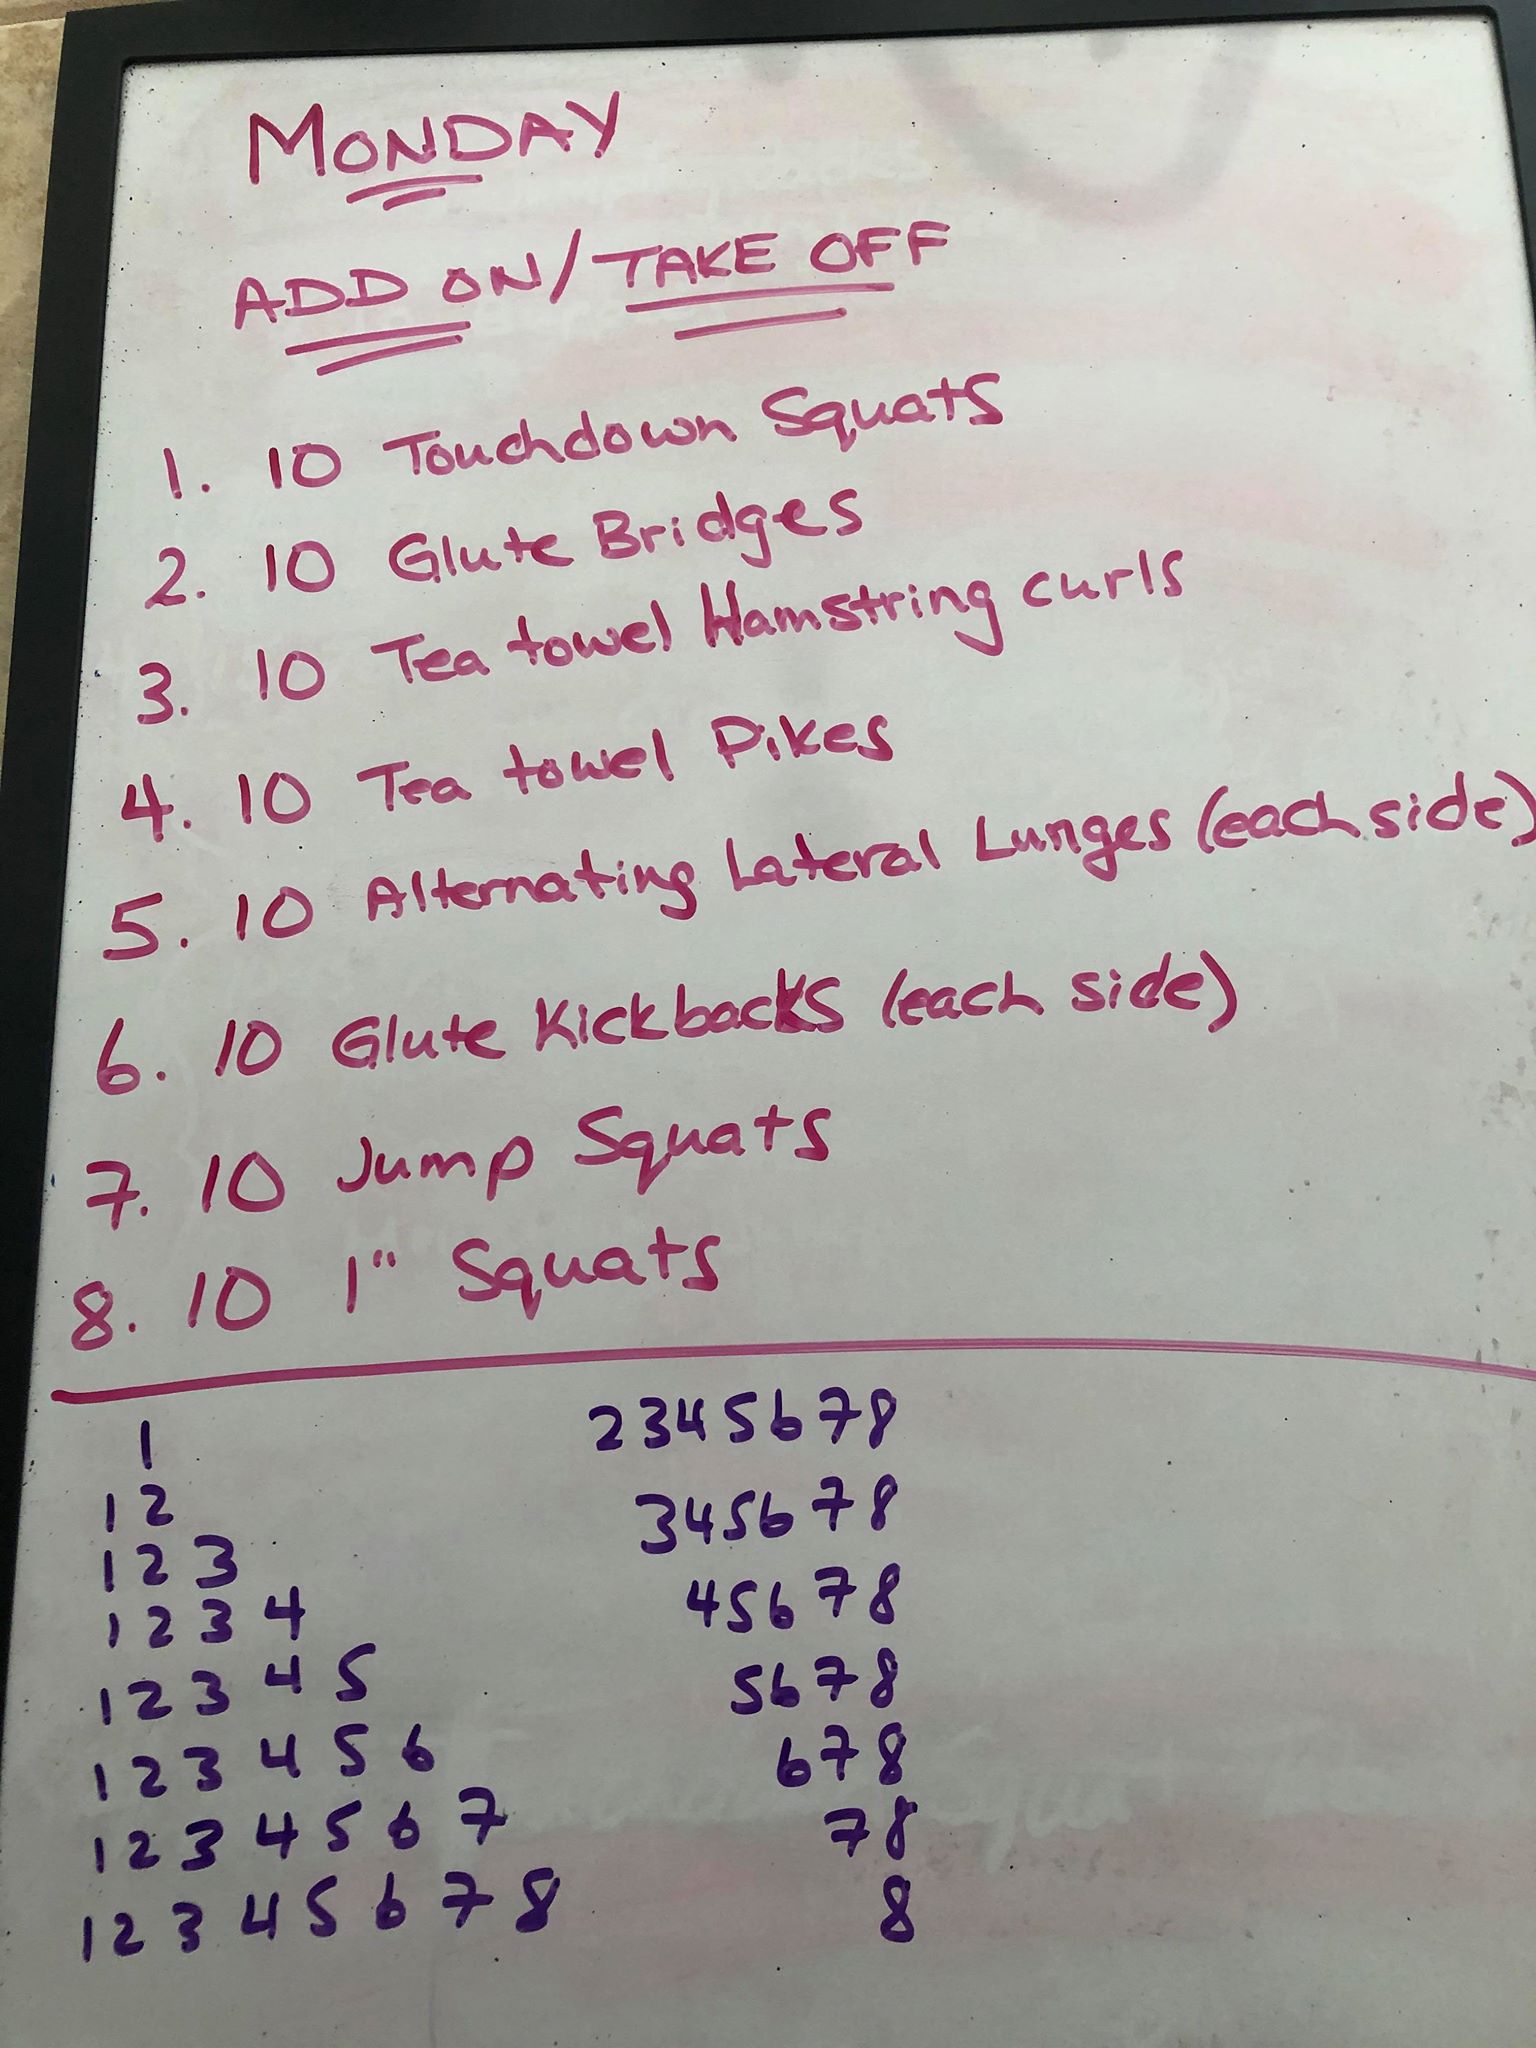 MONDAY
ADD ON/TAKE OFF
1. 10 Touchdown Squats
2. 10 Glute Bridges
3. 10 Tea towel Hamstring curls
4. 10 Tea towel Pikes
5. 10 Alternating Lateral Lunges (each side)
6. 10 Glute Kickbacks (each side)
7. 10 Jump Squats
8. 10 1" Squats
1
1 2
1 2 3
1 2 3 4
1 2 3 4 5
1 2 3 4 5 6
1 2 3 4 5 6 7
1 2 3 4 5 6 7 8
2 3 4 5 6 7 8
3 4 5 6 7 8
4 5 6 7 8
5 6 7 8
6 7 8
7 8
8